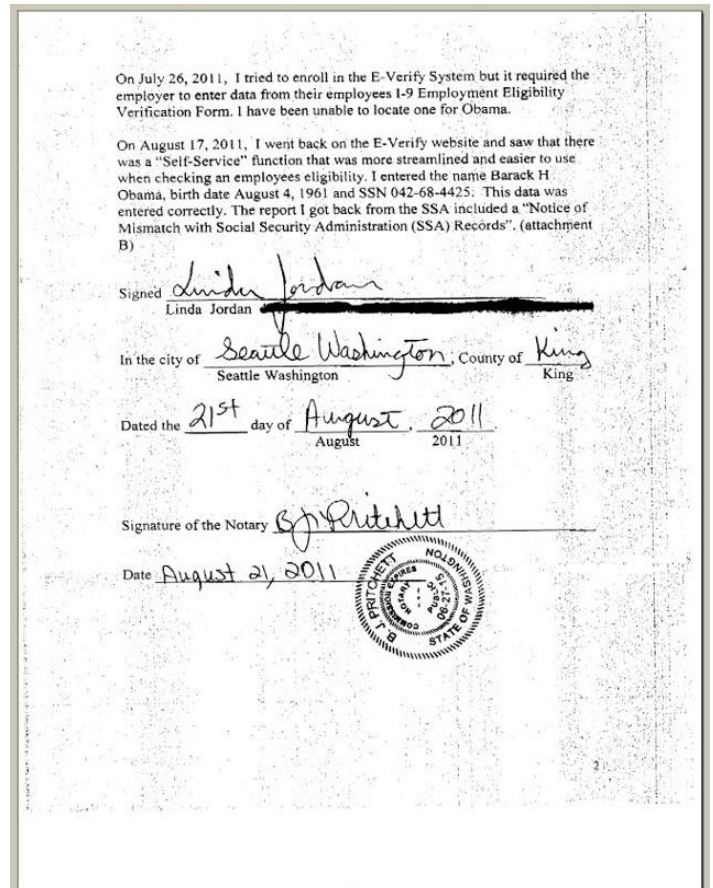 On July 26, 2011, I tried to enroll in the E-Verify System but it required the
employer to enter data from their employees I-9 Employment Eligibility
Verification Form. I have been unable to locate one for Obama.
On August 17, 2011, I went back on the E-Verify website and saw that there
was a “Self-Service” function that was more streamlined and easier to use
when checking an employees eligibility. I entered the name Barack H
Obama, birth date August 4, 1961 and SSN 042-68-4425. This data was
entered correctly. The report I got back from the SSA included a “Notice of
Mismatch with Social Security Administration (SSA) Records”. (attachment
B)
Signed Linda Jordan
Linda Jordan
In the city of Seattle Washington, County of King
Seattle Washington King
Dated the 21st day of August, 2011.
August 2011
Signature of the Notary BJ Pritchett
Date August 21, 2011
B. J. PRITCHETT
NOTARY PUBLIC
COMMISSION EXPIRES
06-27-15
STATE OF WASHINGTON
2